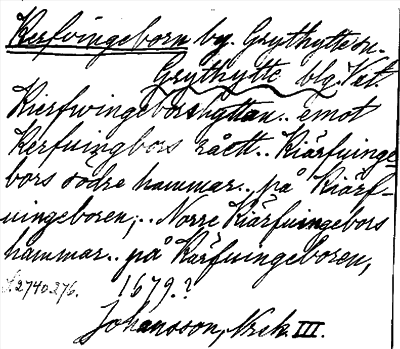 Kerfvingeborn by. Grythytte sn.
Grythytte blg. Vstl.
Kierfwingeborshyttan.. emot
Kerfuingbors råch.. Kiärfuinge-
bors södre hammar.. på Kiärf-
uingeboren;.. Norre Kiärfuingebors
hammar.. på Kärfuingeboren,
S.2740.276. 1679.?
Johansson, Nrck. III.